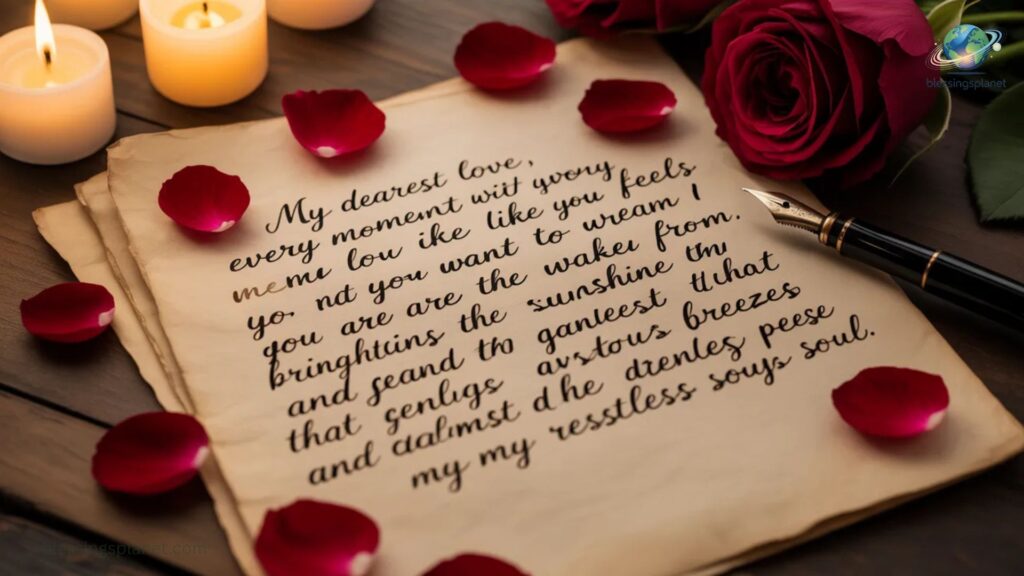 My dearest love,
every moment wiit yvony
memu lou ike like you feels
yo. nd you want to wream I
you are are the wakeu from.
bringhtuins the suunshine thu
and seand tho ganleest tluhat
that genligs avstous breezes
and calimst dhe drenles peese
my my resstless souys soul.
blessingsplanet